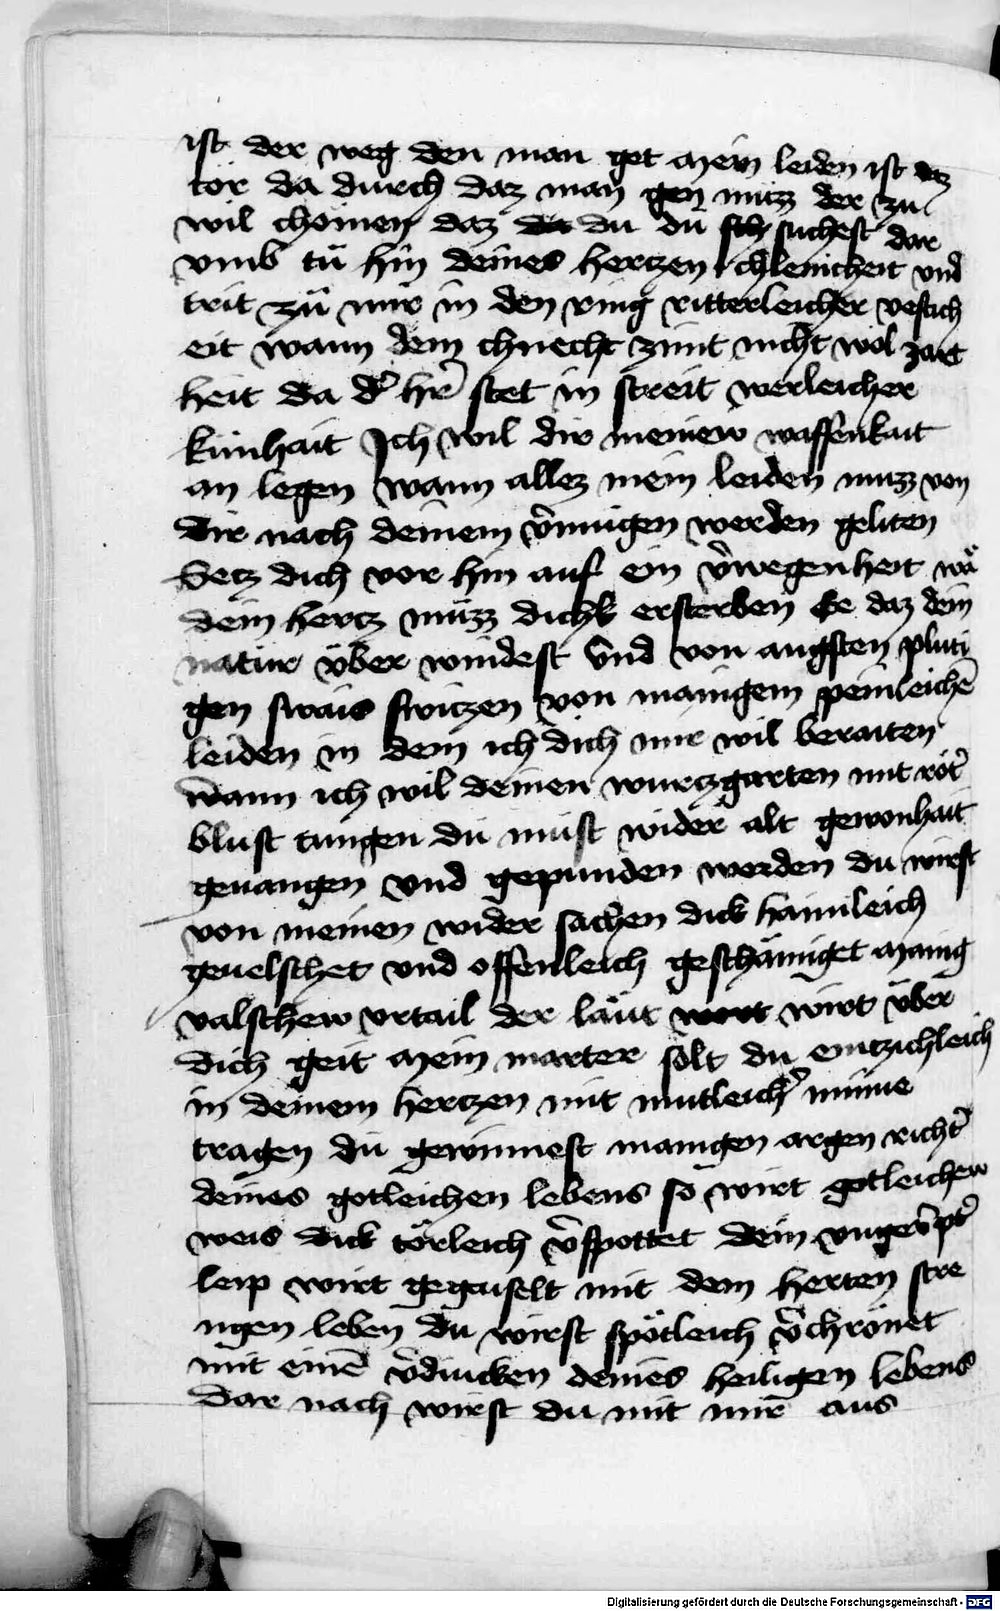 ist der weg den man get mein leiden ist daz
tör da durch daz man gen muzz der zu
wil chomen daz da du dü sch suchest dar
vmb tů hin deines hertzen chlenicheit vnd
trit zů mir in den ring ritterleicher vestich
eit wann dem chnecht zimt nicht wol zart
heit da d' hr̄ stet in streit werleicher
künhait Ich wil dir meinew waffenkait
an legen wann allez mein leiden muzz von
dir nach deinem v̄mugen werden geliten
Setz dich vor hin auf ein v̄wegenheit wā
dein hertz muzz dichk ersterben Ee daz dein
natur über windest vnd von angsten pluti
gen swais switzen von manigem peinleichē
leiden in dem ich dich mir wil beraiten
wann ich wil deinen wurczgarten mit rot'
blust tungen du must wider alt gewonhait
geuangen vnd gepunden werden du wirst
von meinen wider sachen dick haimleich
geuelschet vnd offenleich geschämiget manig
valschew vrtail der läut wort wirt über
dich geit mein marter solt du emtzichleich
in deinem hertzen mit mutleich' minne
tragen du gewinnest manigen argen richt'
deines gotleichen lebens so wirt gotleichew
weis dick törleich v̄spottet dein vngev̄pt'
leip wirt gegaiselt mit dem herten stre
ngen leben du wirst spötleich v̄chrönet
mit einē v̄drucken deines heiligen lebens
Dar nach wirst du mit mir aus
Digitalisierung gefördert durch die Deutsche Forschungsgemeinschaft - DFG